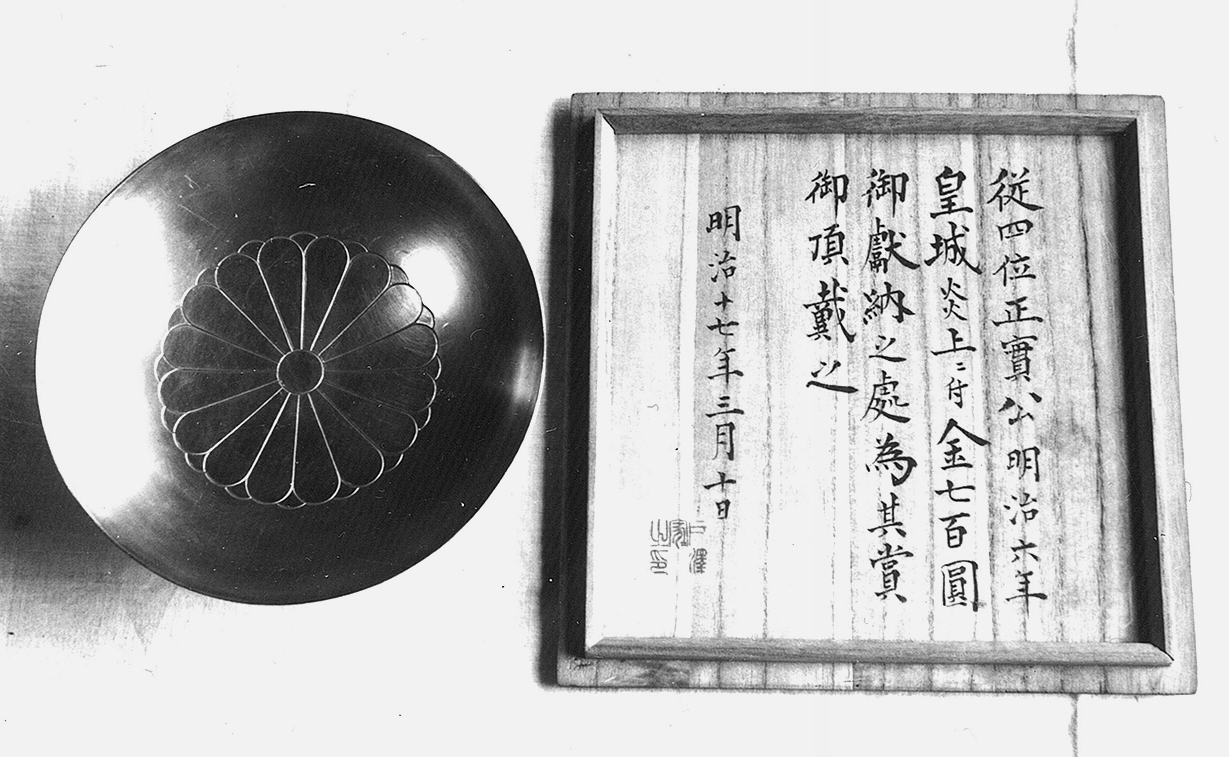 従四位正實公明治六年
皇城炎上ニ付金七百圓
御獻納之處為其賞
御頂戴之
明治十七年三月十日
戸澤家之印